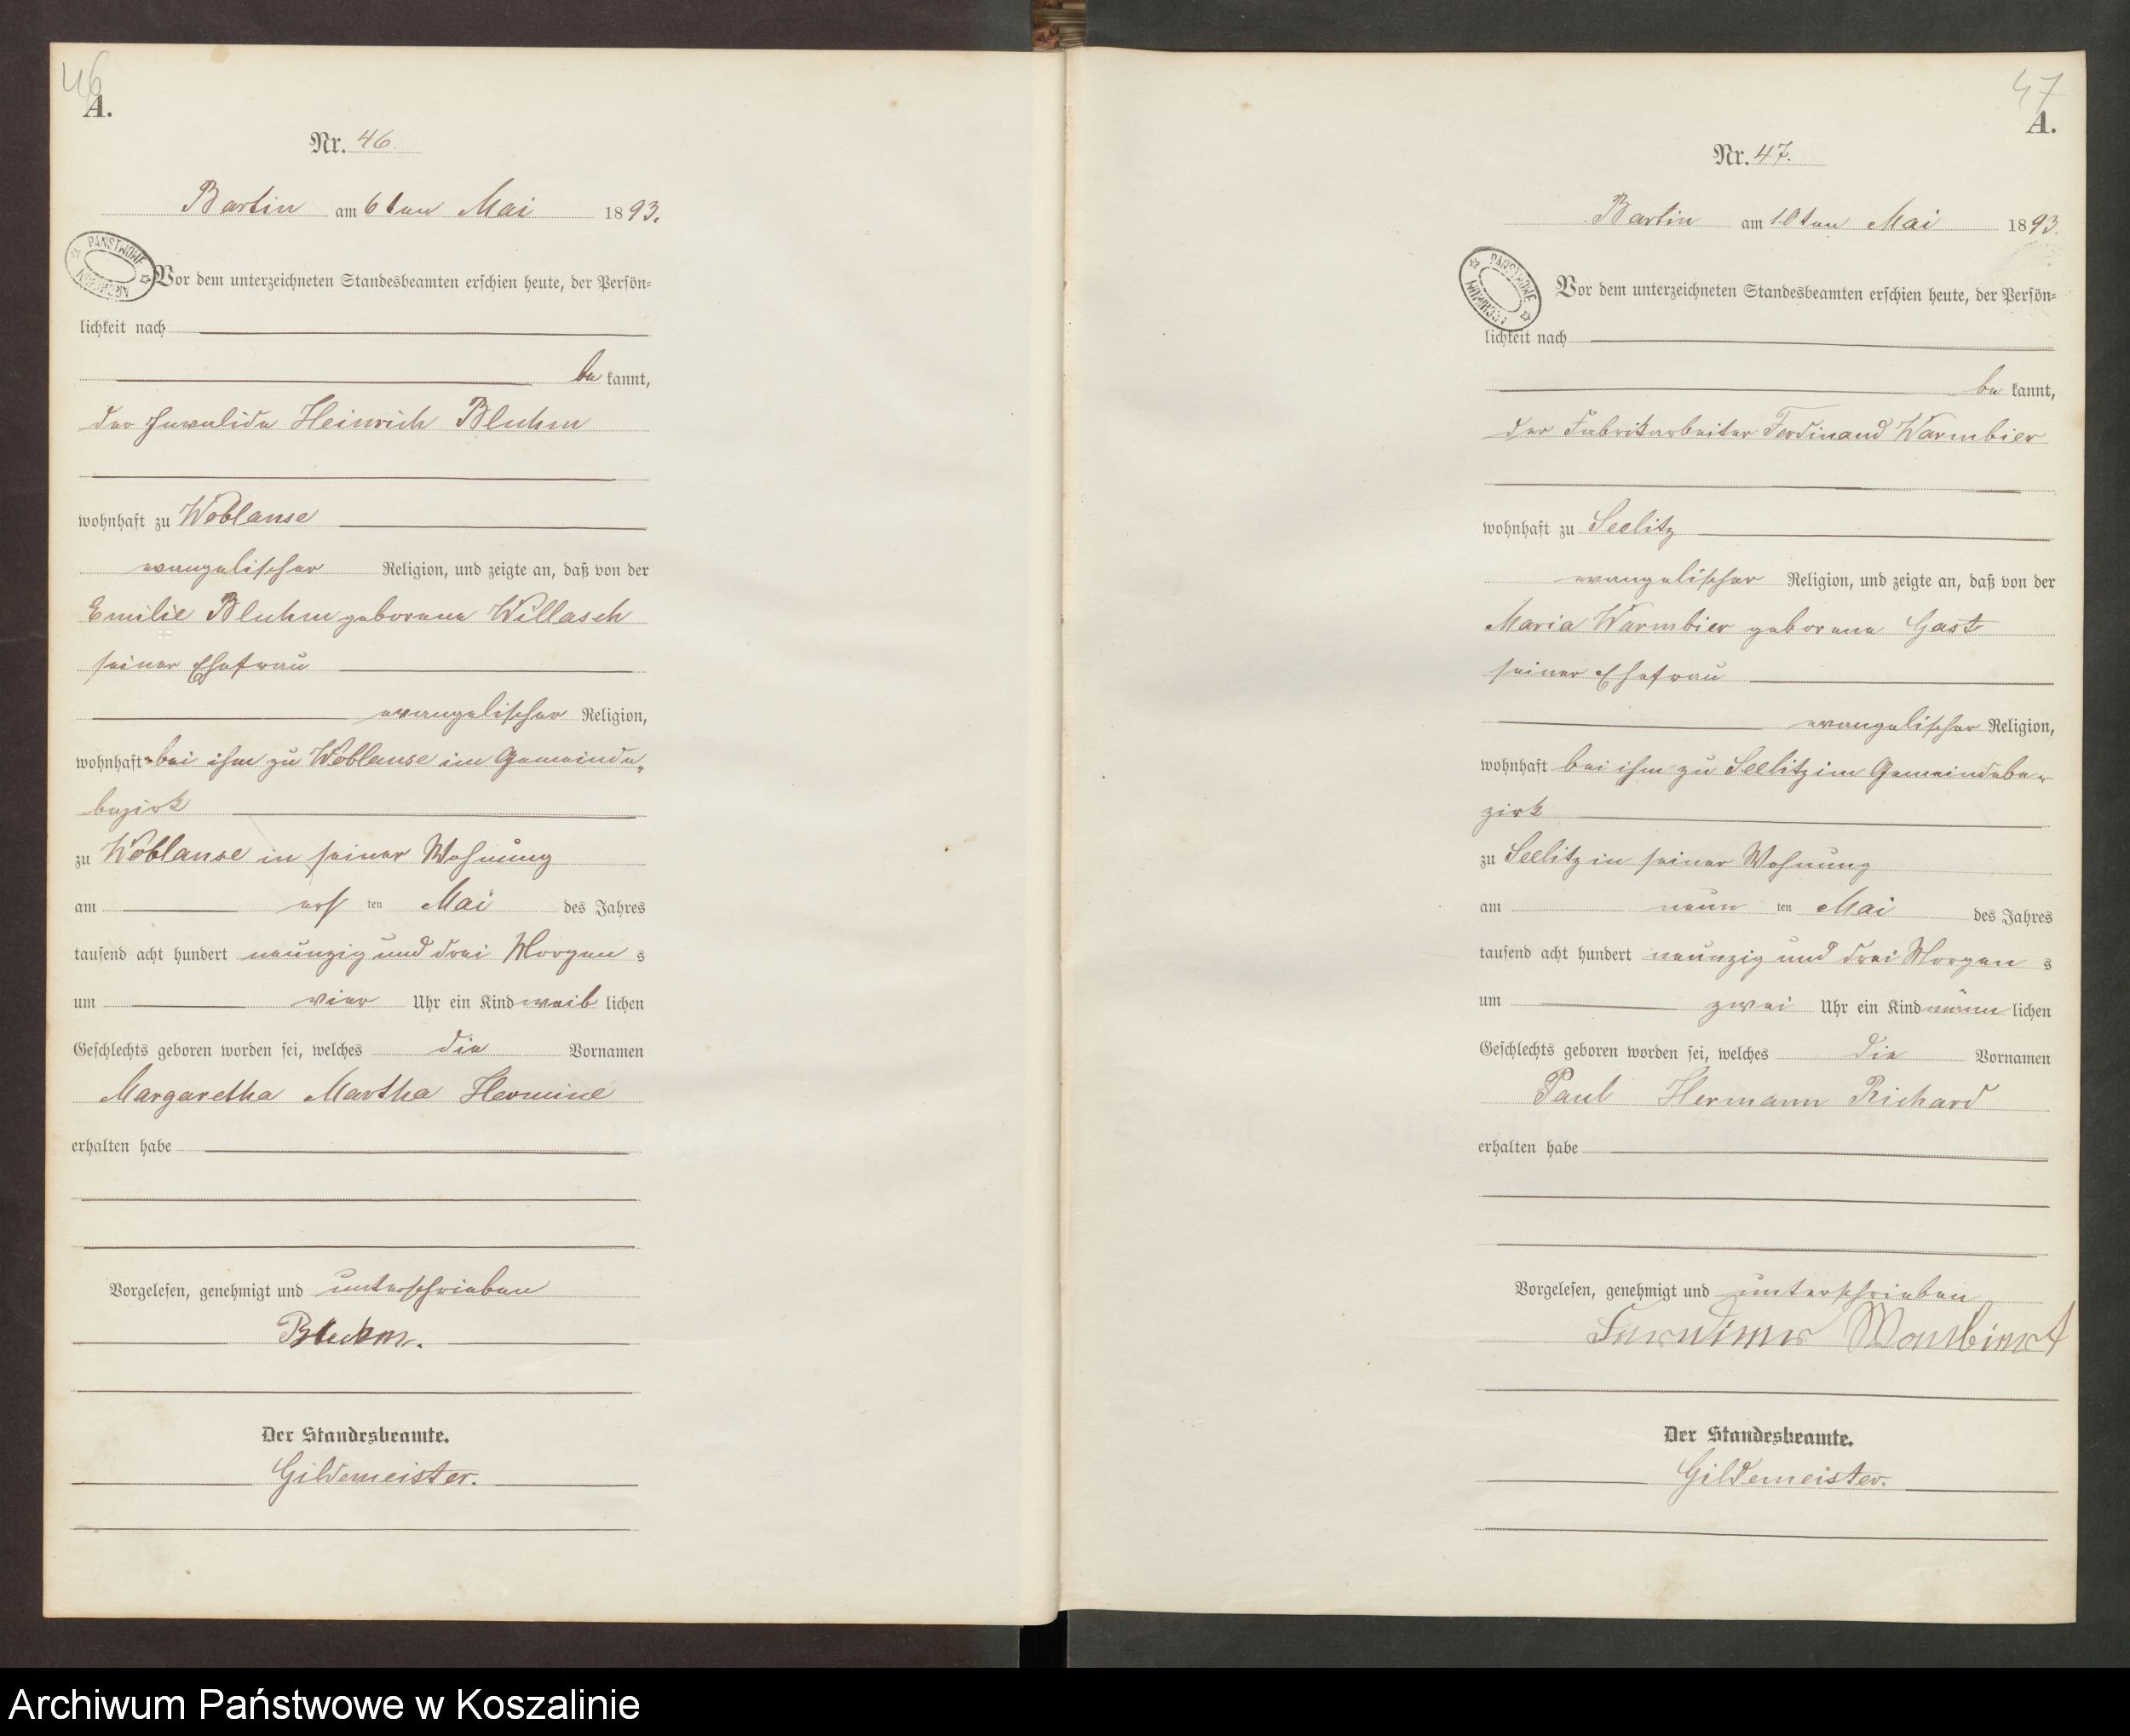 46
A.
Nr. 46
Bartin am 6ten Mai 1893.
PAŃSTWOWE ARCHIWUM
Vor dem unterzeichneten Standesbeamten erschien heute, der Persön=
lichkeit nach
be kannt,
der Invalide Heinrich Bluhm
wohnhaft zu Woblanse
evangelischer Religion, und zeigte an, daß von der
Emilie Bluhm geborene Willasch
seiner Ehefrau
evangelischer Religion,
wohnhaft bei ihm zu Woblanse im Gemeinde„
bezirk
zu Woblanse in seiner Wohnung
am ers ten Mai des Jahres
tausend acht hundert neunzig und drei Morgen s
um vier Uhr ein Kind weib lichen
Geschlechts geboren worden sei, welches die Vornamen
Margaretha Martha Hermine
erhalten habe
Vorgelesen, genehmigt und unterschrieben
Bluhm.
Der Standesbeamte.
Gildemeister.
47
A.
Nr. 47.
Bartin am 10ten Mai 1893.
PAŃSTWOWE ARCHIWUM
Vor dem unterzeichneten Standesbeamten erschien heute, der Persön=
lichkeit nach
be kannt,
der Fabrikarbeiter Ferdinand Warmbier
wohnhaft zu Seelitz
evangelischer Religion, und zeigte an, daß von der
Maria Warmbier geborene Gast
seiner Ehefrau
evangelischer Religion,
wohnhaft bei ihm zu Seelitz im Gemeindebe„
zirk
zu Seelitz in seiner Wohnung
am neun ten Mai des Jahres
tausend acht hundert neunzig und drei Morgen s
um zwei Uhr ein Kind männ lichen
Geschlechts geboren worden sei, welches die Vornamen
Paul Hermann Richard
erhalten habe
Vorgelesen, genehmigt und unterschrieben
Der Standesbeamte.
Gildemeister.
Archiwum Państwowe w Koszalinie